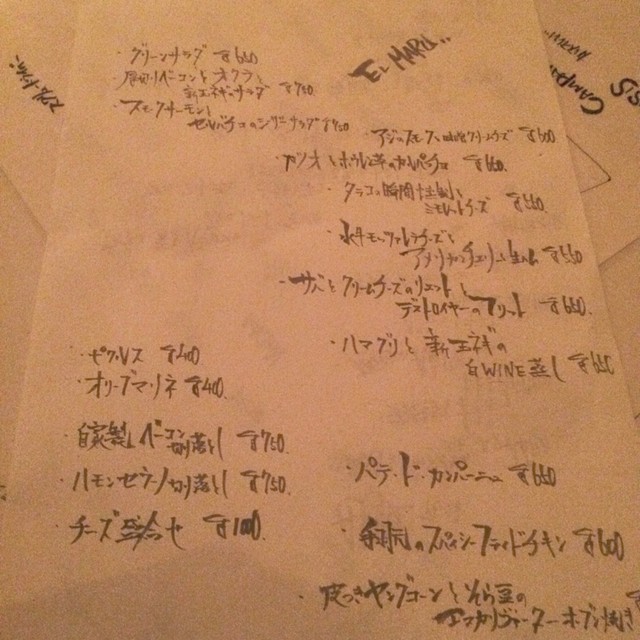 EL MARU..
・グリーンサラダ ¥650
・厚切りベーコンとオクラと
新玉ネギのサラダ ¥750
・スモークサーモンと
セルバチコのシーザーサラダ ¥950
・アジのスモーク クリームチーズ ¥600
・カツオとホウレン草のカルパッチョ ¥600.
・タコの瞬間
ミモレットチーズ ¥550.
・水牛モッツァレラチーズと
アメリカンチェリーと生ハム ¥550
・サバとクリームチーズのリエットと
デストロイヤーのフリット ¥650.
・ピクルス ¥400
・オリーブマリネ ¥400.
・ハマグリと新玉ネギの
白WINE蒸し ¥650
・自家製ベーコン切落とし ¥750.
・ハモンセラーノ切落とし ¥750.
・チーズ盛合せ
・パテ・ド・カンパーニュ ¥650
のスパイシーフライドチキン ¥600
・皮つきヤングコーンとそら豆の
オーブン焼き